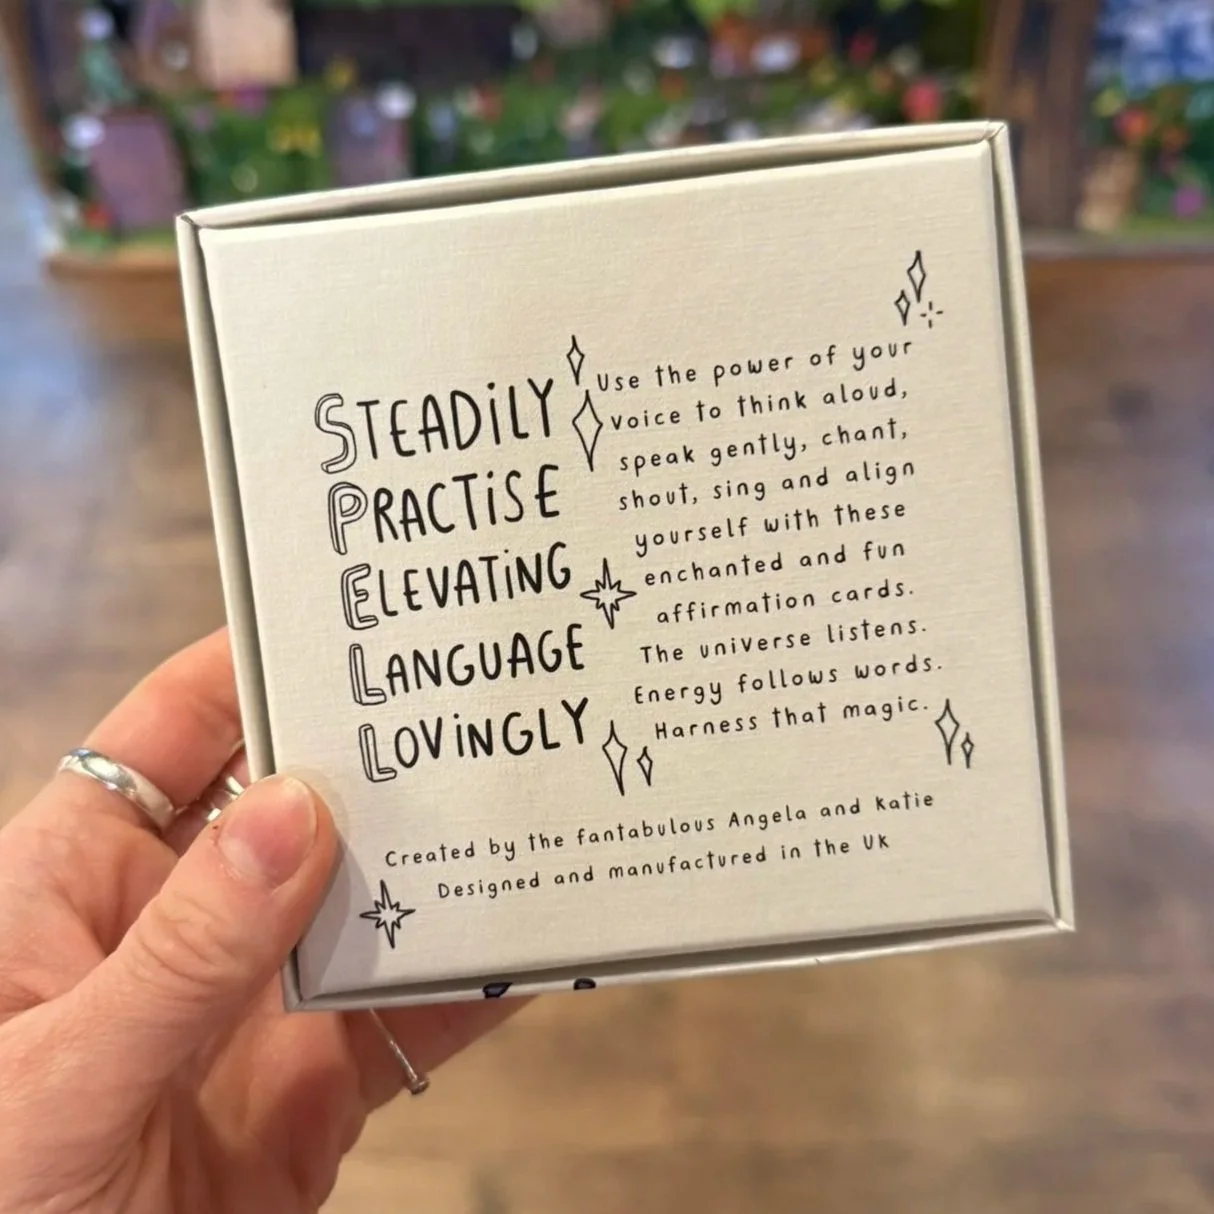 STEADiLY
PRACTiSE
ELEVATiNG
LANGUAGE
LOViNGLY
Use the power of your
voice to think aloud,
speak gently, chant,
shout, sing and align
yourself with these
enchanted and fun
affirmation cards.
The universe listens.
Energy follows words.
Harness that magic.
Created by the fantabulous Angela and Katie
Designed and manufactured in the UK